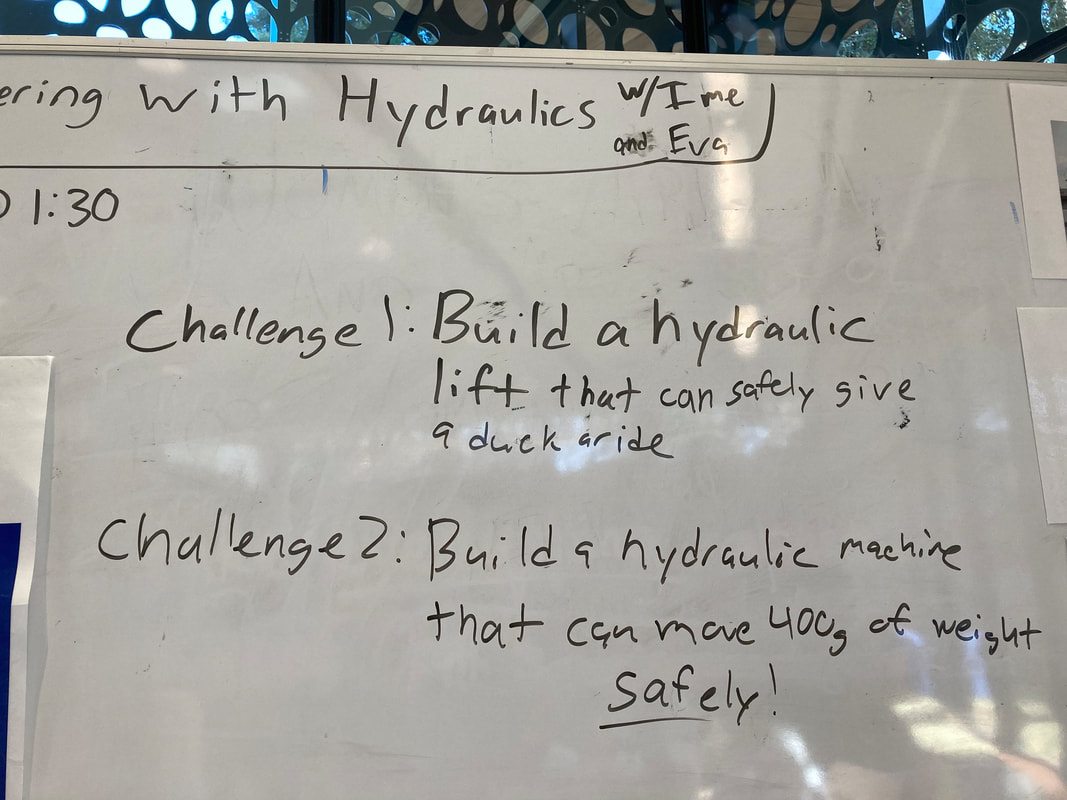 ering with Hydraulics w/Ime
and Eva
1:30
Challenge 1: Build a hydraulic
lift that can safely give
a duck a ride
Challenge 2: Build a hydraulic machine
that can move 400g of weight
safely!